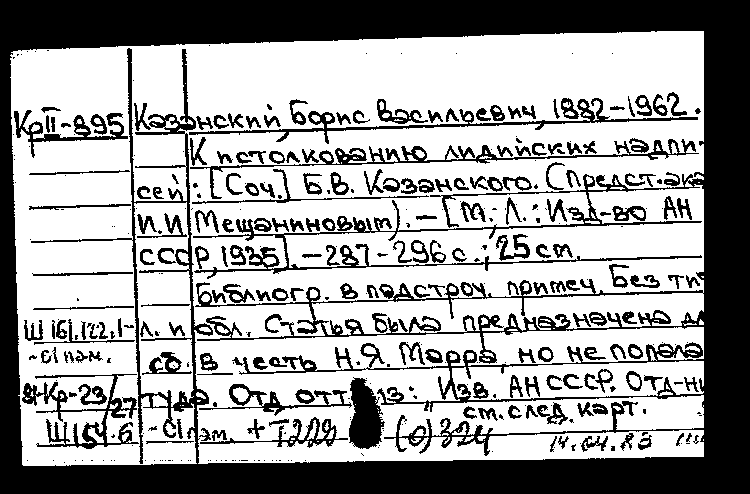 КрII-895 Казанский, Борис Васильевич, 1882-1962.
К истолкованию лидийских надпи-
сей: [Соч.] Б.В. Казанского. (Предст. ака
И.И Мещаниновым). - [М.; Л.: Изд-во АН
СССР, 1935]. - 287-296 с.; 25 см.
Библиогр. в подстроч. примеч. Без ти
Ш 161.122.1- л. и обл. Статья была предназначена дл
~С1 пам. сб. в честь Н.Я. Марра, но не попала
Кр-23/27 туда. Отд. отт. из: "Изв. АН СССР. Отд-ни
см. след. карт.
Ш154.6 -С1 пам. + Т228 (0)324 14.04.83